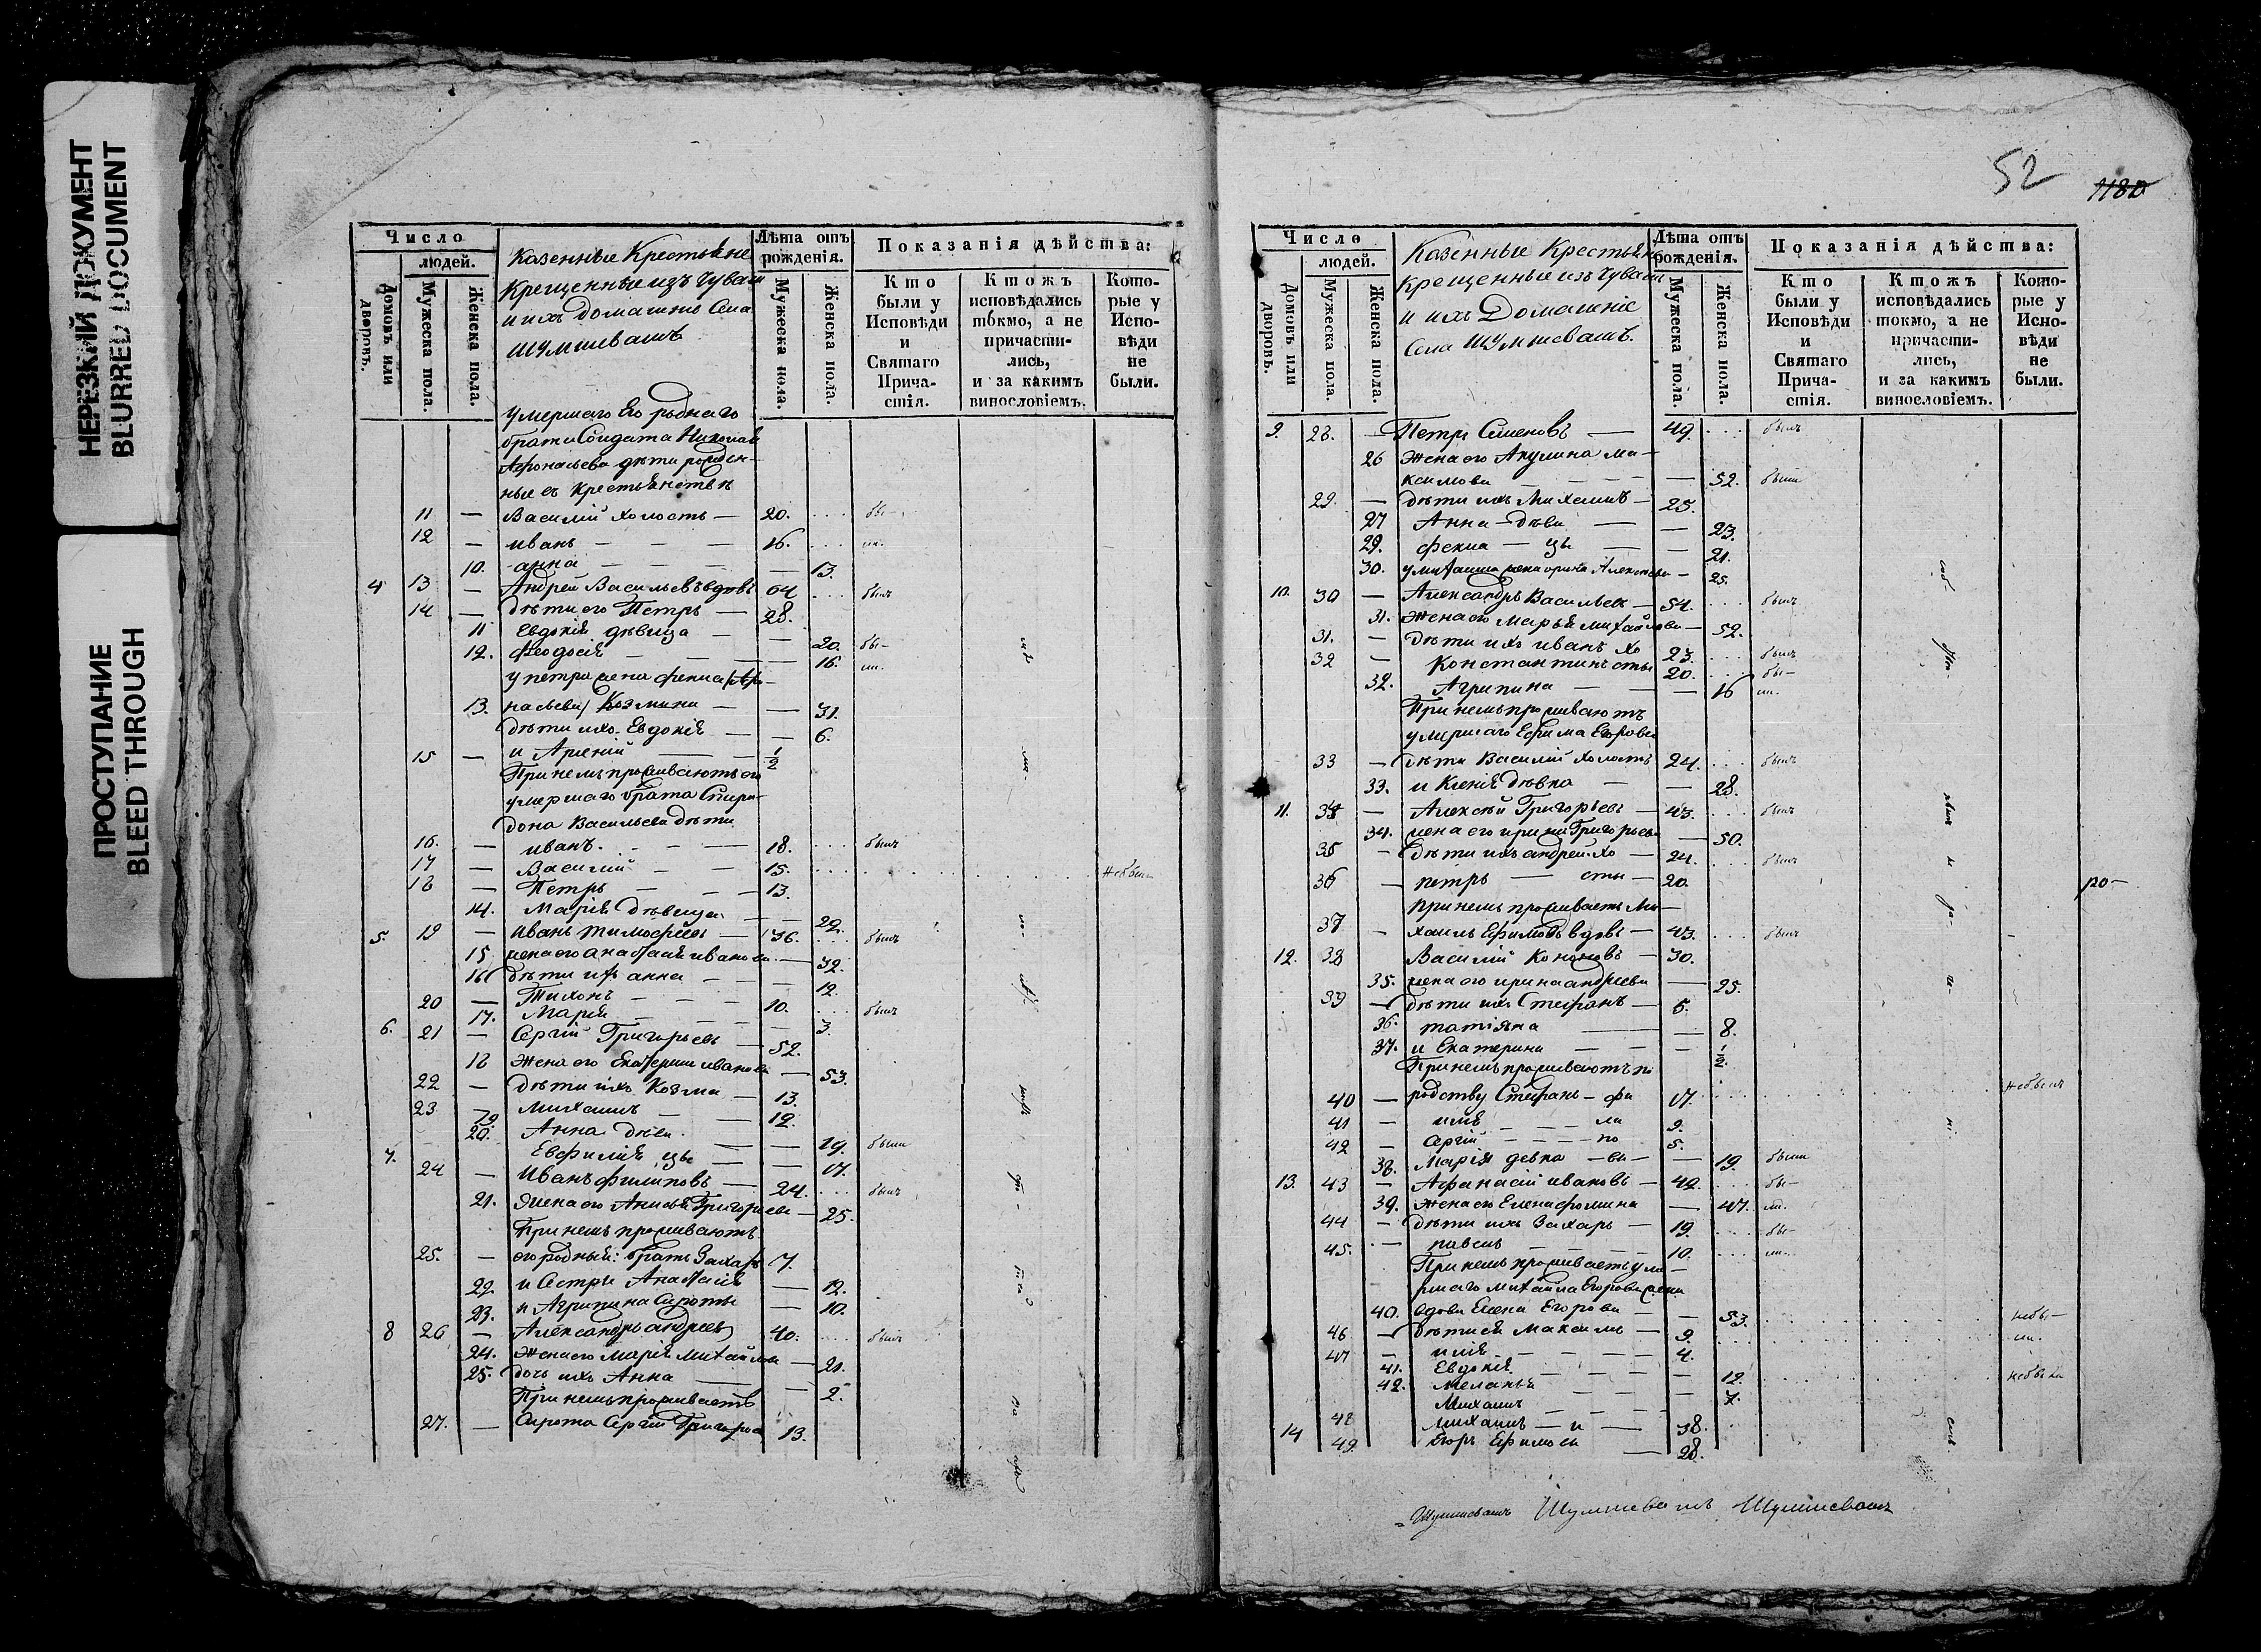 НЕРЕЗКИЙ ДОКУМЕНТ
BLURRED DOCUMENT
ПРОСТУПАНИЕ
BLEED THROUGH
Число
людей.
Домовъ или дворовъ.
Мужеска пола.
Женска пола.
Казенные Крестьяне
Крещенные изъ Чувашъ
и ихъ домашніе Села
Шумшевашъ
Лѣта отъ рожденія.
Мужеска пола.
Женска пола.
Показанія дѣйства:
Кто были у Исповѣди и Святаго Причастія.
Ктожъ исповѣдались токмо, а не причастились, и за какимъ винословіемъ.
Которые у Исповѣди не были.
умершаго Его роднаго
брата Солдата Николая
Афонасьева дѣти рожден-
ные въ крестьянствѣ
11 — Василій холостъ — 20. ...
12 — иванъ — — — 16. ...
10. анна — — — — 13.
4 13 — Андрей Васильевъ вдовъ 64 ... былъ
14 — дѣти его Петръ — 28.
11 Евдокія дѣвица — — 20. бы-
12. Феодосія — — — 16. ли.
у петра жена фекла
13. Козмина — — 31.
дѣти ихъ Евдокія — — 6.
15 — и Арсеній — — 1/2
При немъ проживаютъ его
умершаго брата Спири-
дона Васильева дѣти
16. — иванъ. — — — 18. ... былъ
17 — Василій — — 15. ... не были
18 — Петръ — — — 13.
14. Марія дѣвица — — 22.
5. 19 — Иванъ Тимофѣевъ — 36. ... былъ
15 жена его Анастасія иванова — 32.
16 дѣти ихъ анна — — — 12.
20 — Тихонъ — — — 10. ... былъ
17. Марія — — — — 3.
6. 21 — Сергій Григорьевъ — 52.
18 Жена его Екатерина иванова — 53.
22 — дѣти ихъ Козма — 13.
23 — Михаилъ — — 12.
19. Анна дѣви- — — 19. были
20. Евфимія цы — — 17.
7. 24 — Иванъ филиповъ — 24. ... былъ
21. Жена его Анисья Григорьева — 25.
При немъ проживаютъ
25. — его родный: братъ Захаръ 7.
22 и Сестры Анастасія — 12.
23. и Агрипина Сироты — 10.
8 26 — Александръ андреевъ 40. ... былъ
24. Жена его Марія Михайлова — 21.
25. дочь ихъ Анна — — 2.
При немъ проживаетъ
27. — Сирота Сергій Григорьев 13.
52
1180
Число
людей.
Домовъ или дворовъ.
Мужеска пола.
Женска пола.
Казенные Крестьяне
крещенные изъ Чувашъ
и ихъ Домашніе
Села Шумшевашъ.
Лѣта отъ рожденія.
Мужеска пола.
Женска пола.
Показанія дѣйства:
Кто были у Исповѣди и Святаго Причастія.
Ктожъ исповѣдались токмо, а не причастились, и за какимъ винословіемъ.
Которые у Исповѣди не были.
9. 28. — Петръ Семеновъ — 49. ... былъ
26 Жена его Акулина Ма-
ксимова — — — — 52. были
29. — дѣти ихъ Михаилъ — 25.
27 Анна — дѣви — — 23.
29. фекла — цы — — 21.
30. у Михаила жена ирина Алексѣева — 25.
10. 30 — Александръ Васильевъ — 54. ... былъ
31. Жена его Марья михайлова — 52.
31. — дѣти ихъ иванъ хо 23. ... былъ
32 — Константинъ сты 20. ... бы-
32. Агрипина — — — 16 ли.
При немъ проживаютъ
умершаго Ефима Егорова
33 — дѣти Василій холостъ 24. ... былъ
33. и Ксенія дѣвка — — 28.
11. 34 — Алексѣй Григорьевъ — 43. ... былъ
34. жена его ирина Григорьева — 50.
35 — дѣти ихъ андрей хо — 24. ... былъ
36 — петръ — сты — 20.
при немъ проживаетъ Ми-
37 — хаилъ Ефимовъ вдовъ — 43. ... былъ
12. 38 Василій Кононовъ — 30.
35. жена его ирина андреева — 25.
39 — дѣти ихъ Стефанъ — 5.
36. татіяна — — 8.
37. и Екатерина — — — 1/2.
При немъ проживаютъ по
40 — родству Стефанъ — фи 17. ... не былъ
41 — илья — — — ли 9.
42 — Сергій — — — по 5.
38. Марія девка — вы — — 19. были
13. 43 — Афанасій ивановъ — 42. ... бы-
39. Жена его Елена фомина — 47. ли.
44 — дѣти ихъ Захаръ — 19. ... бы-
45. — павелъ — — — — 10. ... ли.
При немъ проживаетъ уме-
ршаго михайла Егорова жена
40. вдова Елена Егорова — — 53. ... не бы-
46 — дѣти ея Максимъ — 9. ... ли.
47 — илія — — — — 4.
41. Евдокія — — — — 12. ... не была
42. Меланья — — — 7.
Михаилъ — — — —
14 48 Михаилъ — и — 38.
49. Егоръ Ефимовы — 28.
Шумшевашъ Шумшевашъ Шумшевашъ